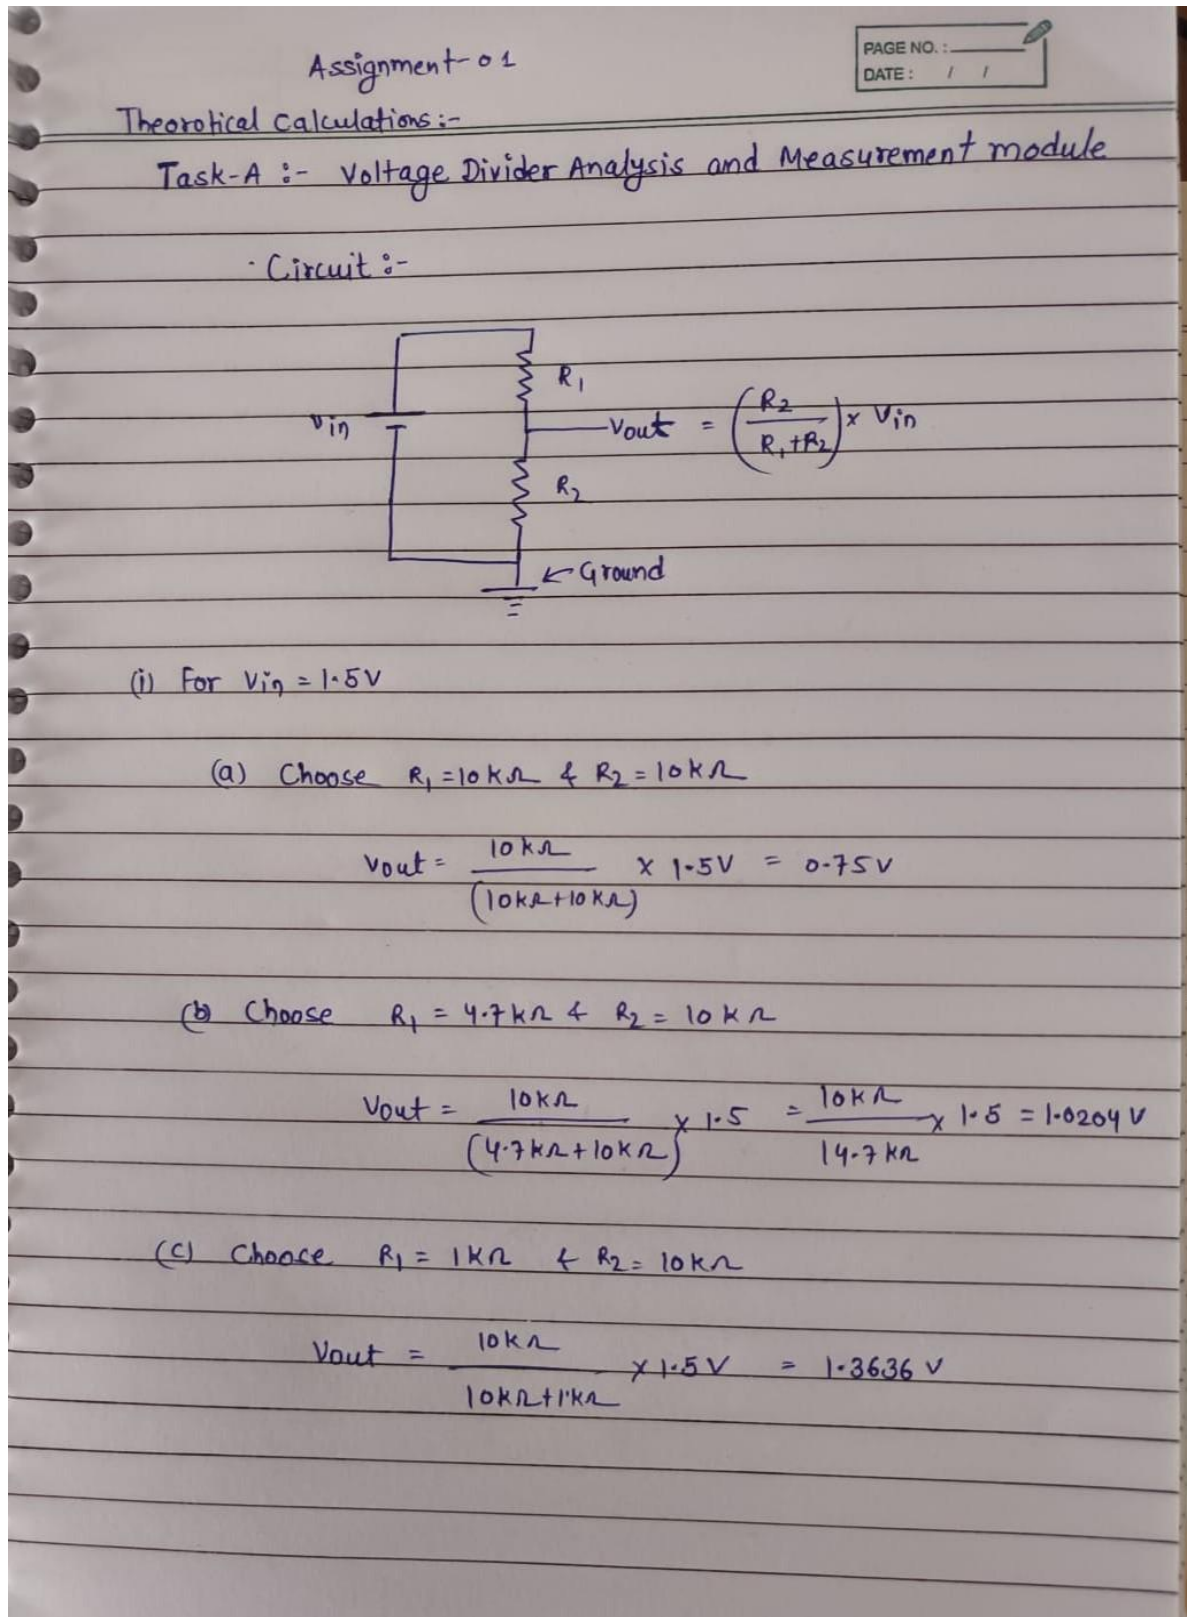 Assignment-01
PAGE NO. :
DATE : / /
Theorotical calculations :-
Task-A :- Voltage Divider Analysis and Measurement module
· Circuit :-
R1
Vin
Vout = (R2 / R1+R2) x Vin
R2
← Ground
(i) For Vin = 1.5V
(a) Choose R1 = 10kΩ & R2 = 10kΩ
Vout = 10kΩ / (10kΩ+10kΩ) x 1.5V = 0.75V
(b) Choose R1 = 4.7kΩ & R2 = 10kΩ
Vout = 10kΩ / (4.7kΩ+10kΩ) x 1.5 = 10kΩ / 14.7kΩ x 1.5 = 1.0204V
(c) Choose R1 = 1kΩ & R2 = 10kΩ
Vout = 10kΩ / 10kΩ+1kΩ x 1.5V = 1.3636V